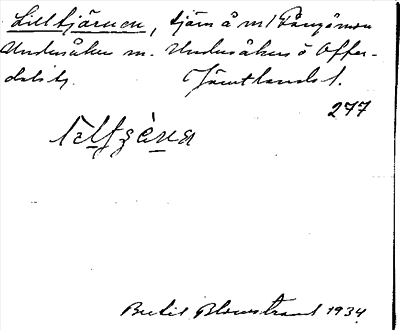 Lilltjärnen, tjärn å m/ Fångåmon
Undersåker sn. Undersåkers o Offer-
dals tg. Jämtlands l.
277
Bertil Blomstrand 1934